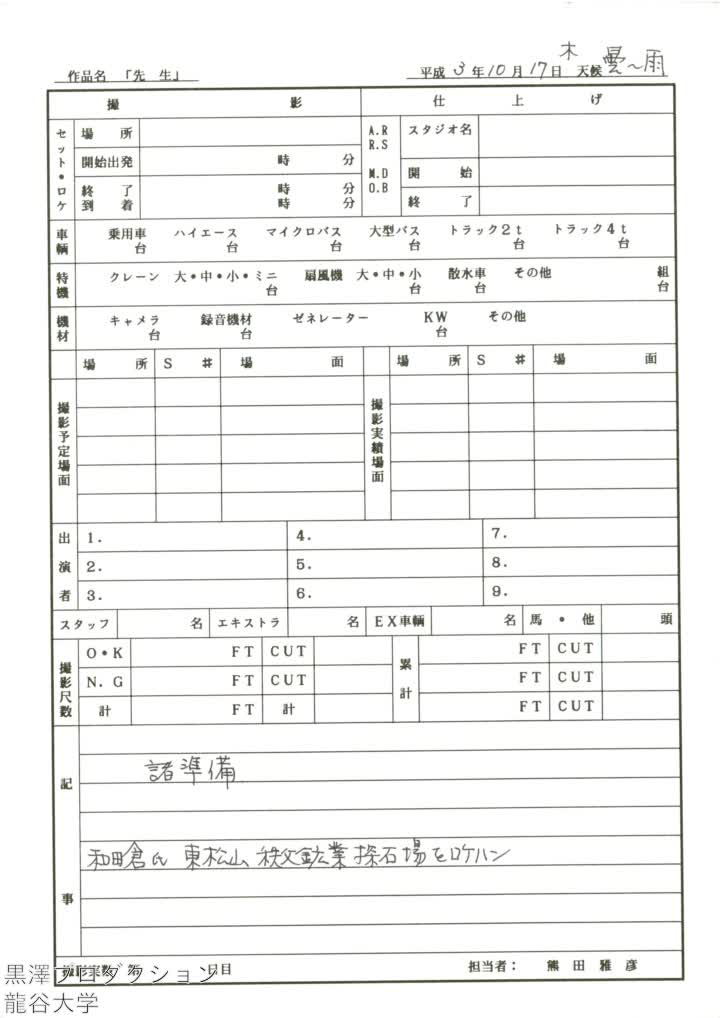 作品名 「先 生」 平成 3 年 10 月 17 日 木 天候 曇〜雨
撮 影 仕 上 げ
セット・ロケ 場 所 A.R R.S M.D O.B スタジオ名
開始出発 時 分 開 始
終 了 時 分 終 了
到 着 時 分
車輌 乗用車 台 ハイエース 台 マイクロバス 台 大型バス 台 トラック2t 台 トラック4t 台
特機 クレーン 大・中・小・ミニ 台 扇風機 大・中・小 台 散水車 台 その他 組 台
機材 キャメラ 台 録音機材 台 ゼネレーター KW 台 その他
場 所 S # 場 面 場 所 S # 場 面
撮影予定場面 撮影実績場面
出演者 1. 4. 7.
2. 5. 8.
3. 6. 9.
スタッフ 名 エキストラ 名 EX車輌 名 馬・他 頭
撮影尺数 O・K FT CUT 累計 FT CUT
N.G FT CUT FT CUT
計 FT 計 FT CUT
記事
諸準備
和田倉氏 東松山、秩父鉱業採石場をロケハン
撮影実数 第 日目 担当者: 熊 田 雅 彦
黒澤プロダクション
龍谷大学